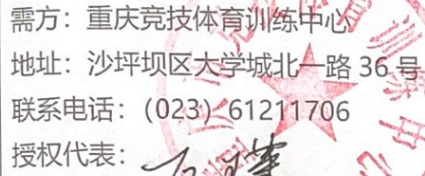 需方：重庆竞技体育训练中心
地址：沙坪坝区大学城北一路 36 号
联系电话：（023）61211706
授权代表：
训练中心